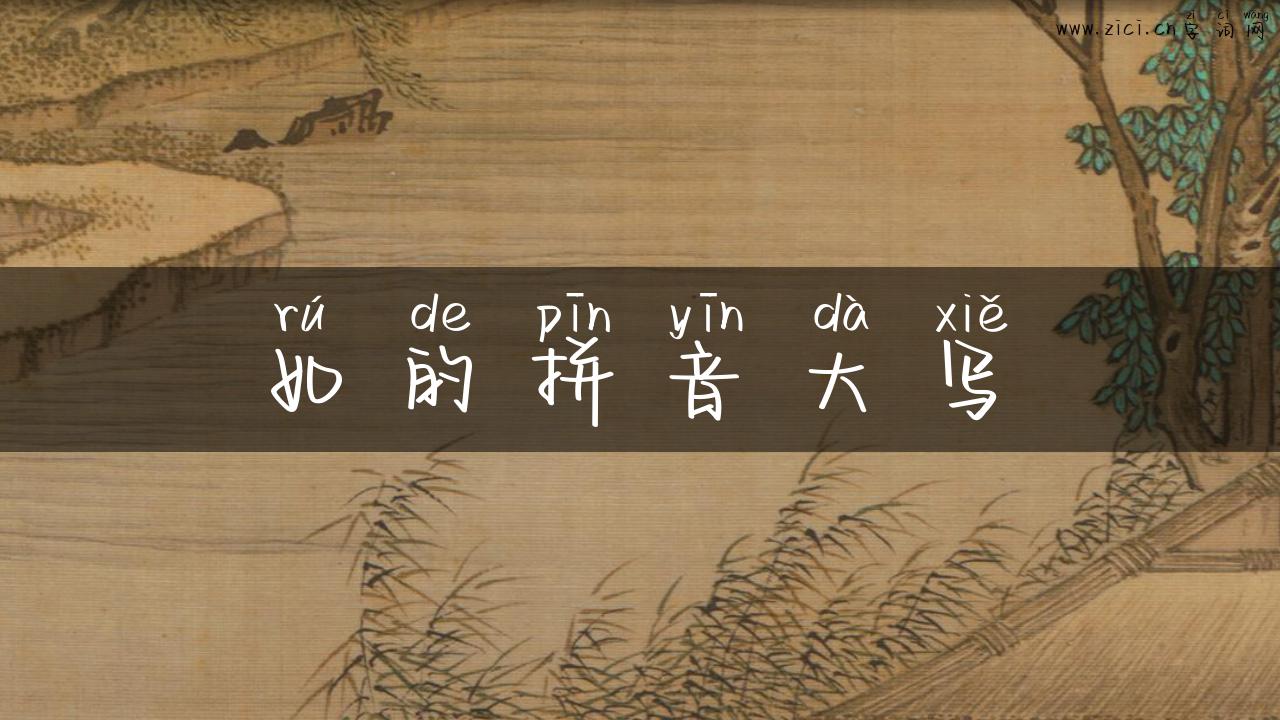 zì cí wǎng
www.zici.cn字词网
rú de pīn yīn dà xiě
如的拼音大写